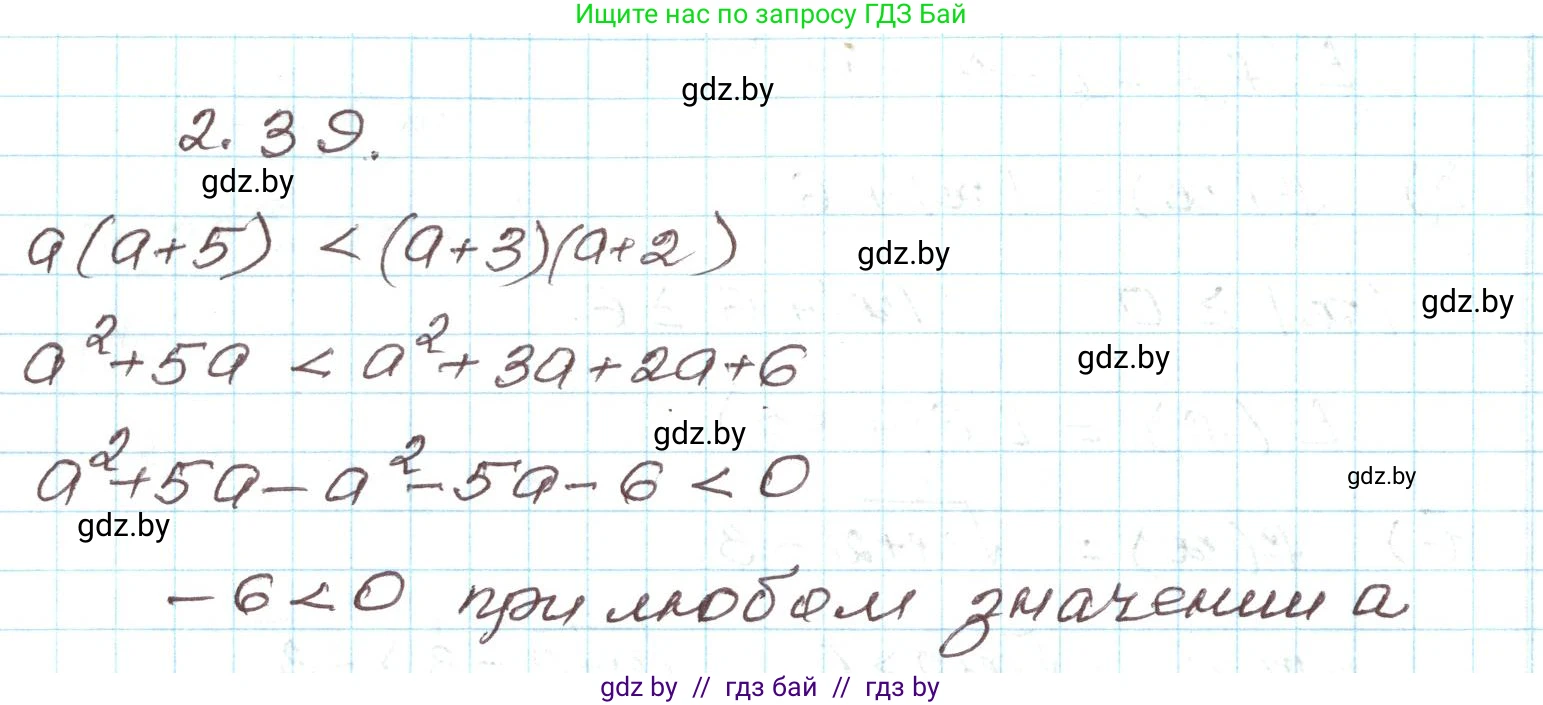 Ищите нас по запросу ГДЗ Бай
gdz.by
2.39.
gdz.by
a(a+5) < (a+3)(a+2)
gdz.by
gdz.by
a²+5a < a²+3a+2a+6
gdz.by
gdz.by
a²+5a-a²-5a-6<0
gdz.by
gdz.by
-6<0 при любом значении a
gdz by // гдз бай // гдз by